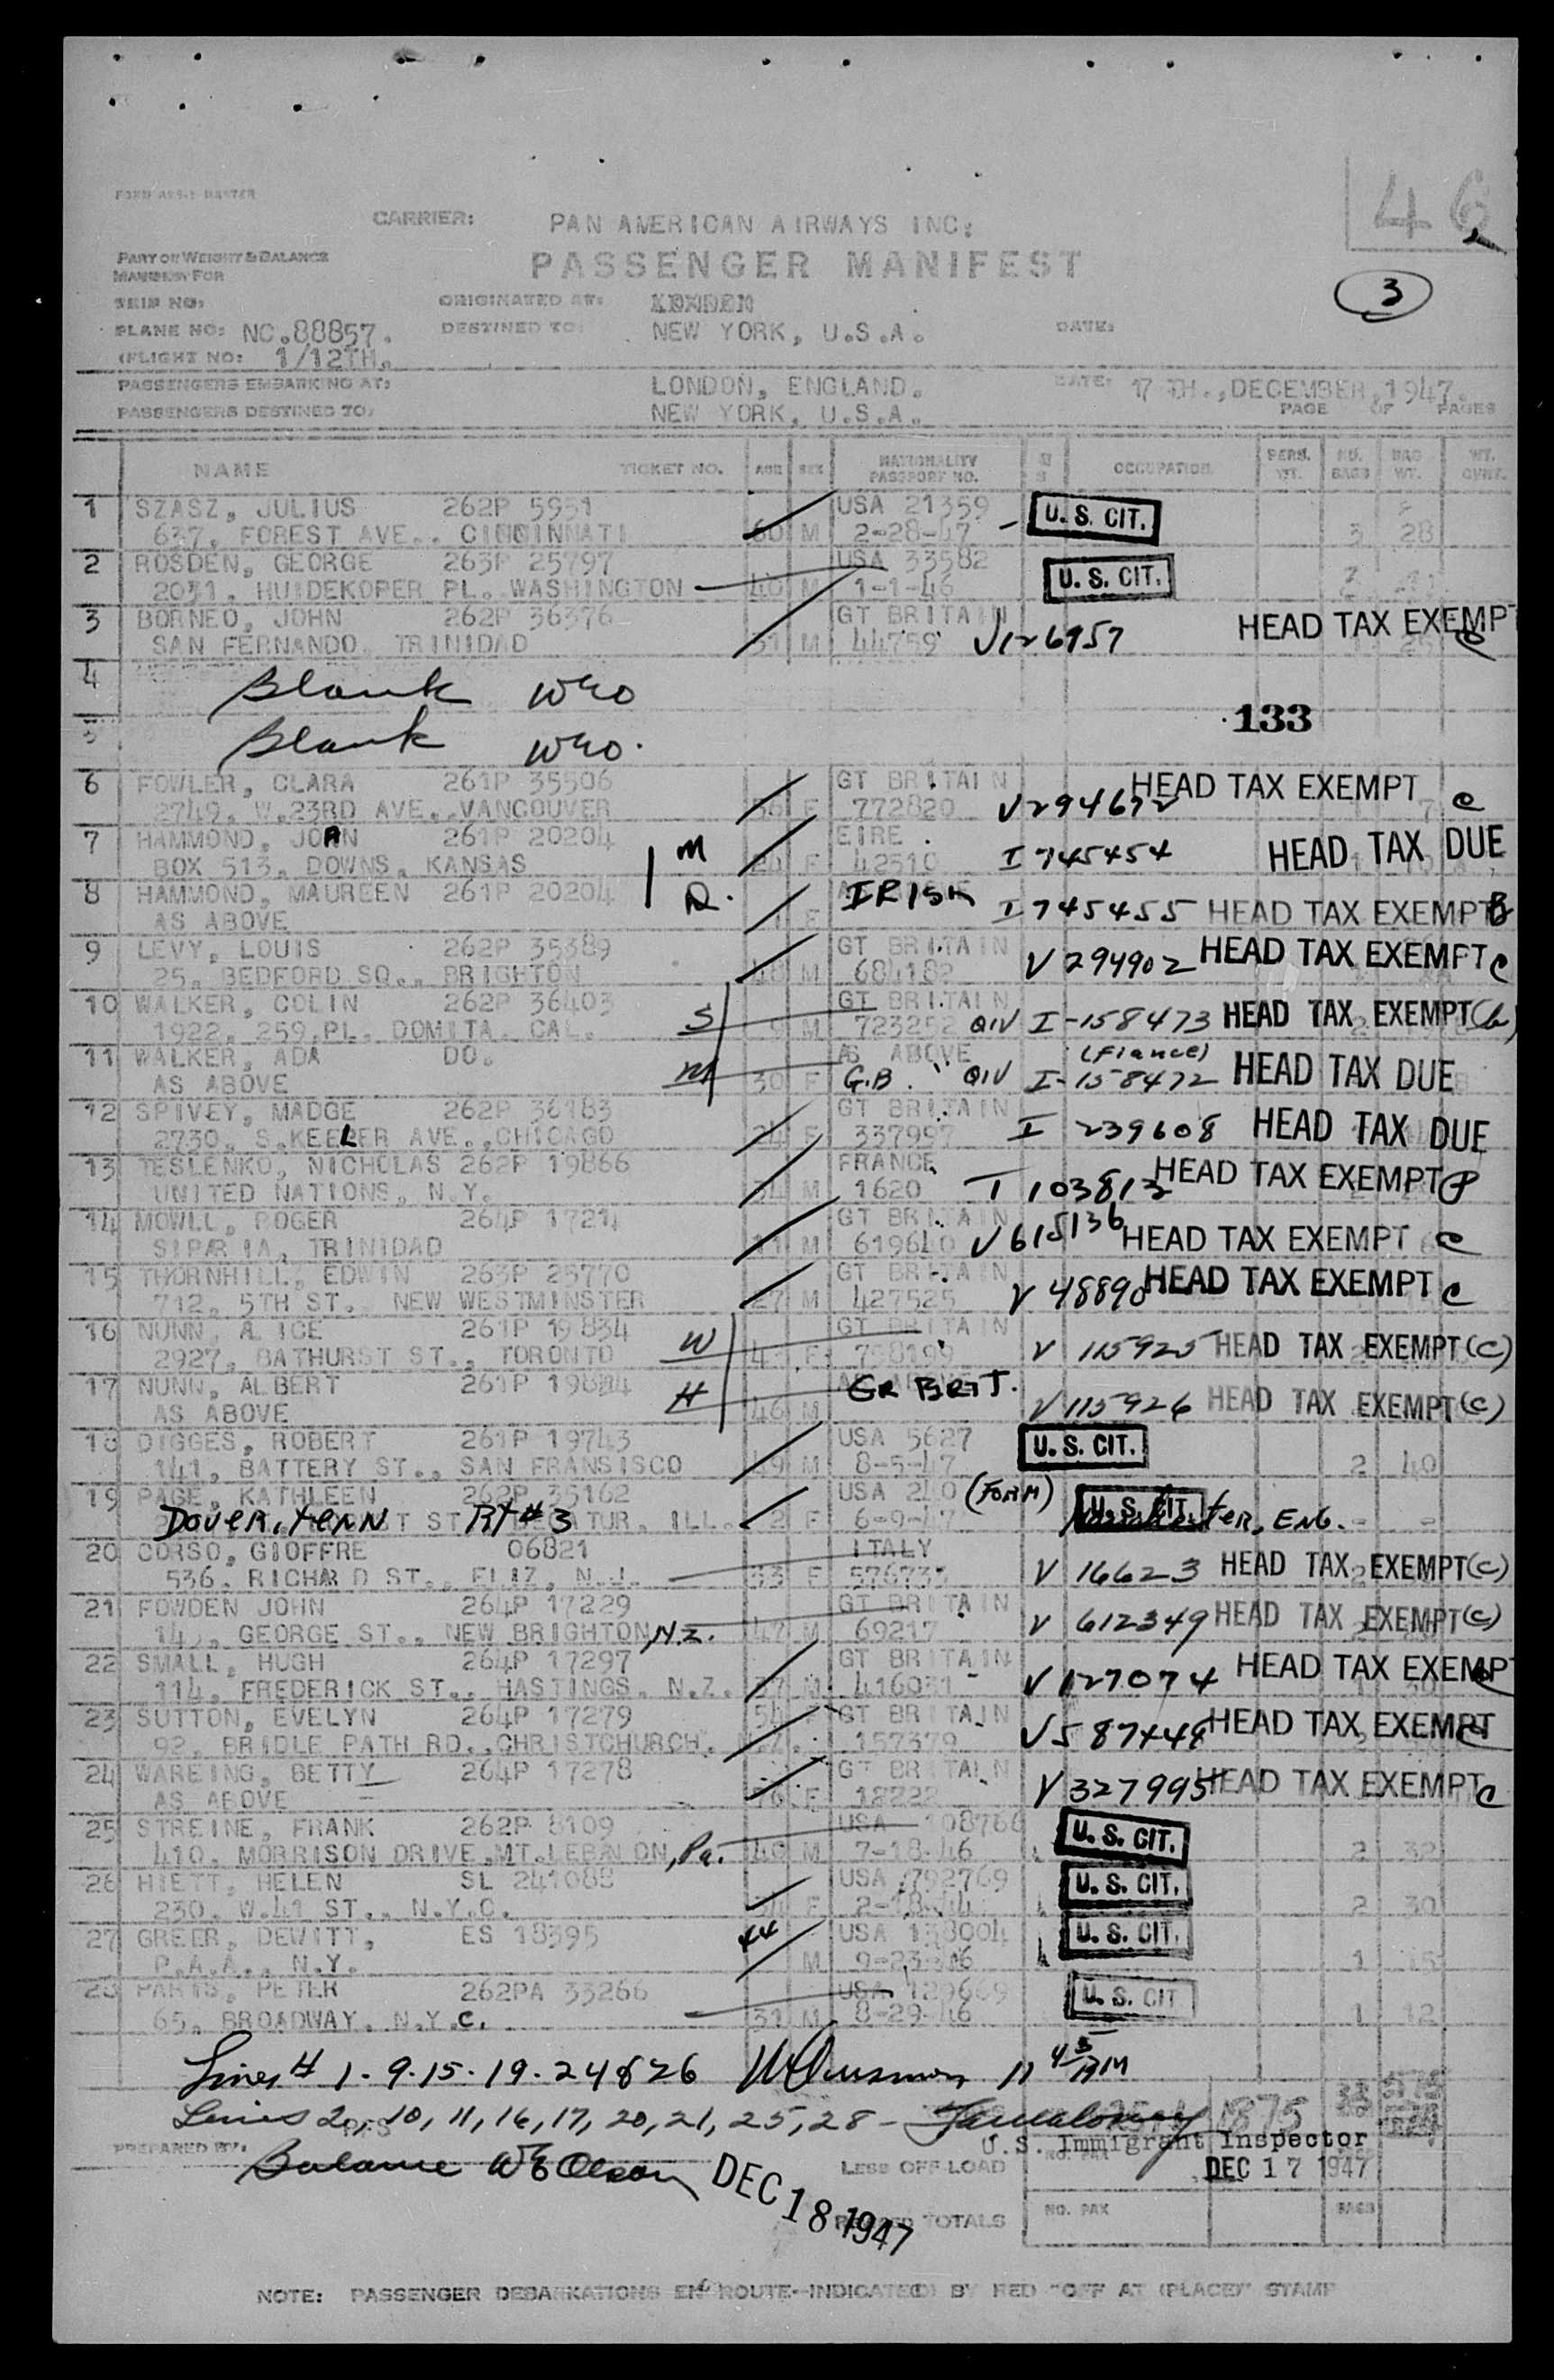 FORM ABS-1 MASTER
46
CARRIER: PAN AMERICAN AIRWAYS INC:
PART OF WEIGHT & BALANCE
PASSENGER MANIFEST
MANIFEST FOR
3
TRIP NO: ORIGINATED AT: LONDON
PLANE NO: NC.88857. DESTINED TO: NEW YORK, U.S.A. DATE:
(FLIGHT NO: 1/12TH.
PASSENGERS EMBARKING AT: LONDON, ENGLAND. DATE: 17 TH.,DECEMBER,1947.
PASSENGERS DESTINED TO: NEW YORK, U.S.A. PAGE OF PAGES
NAME TICKET NO. AGE SEX NATIONALITY PASSPORT NO. OCCUPATION PERS. WT. NO. BAGS BAG WT. WT.
1 SZASZ, JULIUS 262P 5951 USA 21359 U.S. CIT.
637, FOREST AVE.. CINCINNATI 60 M 2-28-47 3 28
2 ROSDEN, GEORGE 263P 25797 USA 33582 U.S. CIT.
2031, HUIDEKOPER PL. WASHINGTON 40 M 1-1-46
3 BORNEO, JOHN 262P 36376 GT BRITAIN HEAD TAX EXEMPT
SAN FERNANDO, TRINIDAD 31 M 44759 V126957 C
4 Blank WEO
133
5 Blank WEO.
6 FOWLER, CLARA 261P 35506 GT BRITAIN HEAD TAX EXEMPT
2749, W.23RD AVE., VANCOUVER 56 F 772820 V294672 C
7 HAMMOND, JOAN 261P 20204 M EIRE
BOX 513, DOWNS, KANSAS 24 F 42510 I 745454 HEAD TAX DUE
8 HAMMOND, MAUREEN 261P 20204 D. IRISH
AS ABOVE 1 F I 745455 HEAD TAX EXEMPT B
9 LEVY, LOUIS 262P 35389 GT BRITAIN
25, BEDFORD SQ., BRIGHTON 48 M 684182 V 294902 HEAD TAX EXEMPT C
10 WALKER, COLIN 262P 36403 S GT BRITAIN
1922, 259.PL. DOMITA. CAL. 9 M 723252 QIV I-158473 HEAD TAX EXEMPT(b)
11 WALKER, ADA DO. M AS ABOVE (fiance)
AS ABOVE 30 F G.B. QIV I-158472 HEAD TAX DUE
12 SPIVEY, MADGE 262P 36183 GT BRITAIN
2730, S.KEELER AVE., CHICAGO 24 F 337997 I 239608 HEAD TAX DUE
13 TESLENKO, NICHOLAS 262P 19866 FRANCE
UNITED NATIONS, N.Y. 34 M 1620 T 103812 HEAD TAX EXEMPT P
14 MOWLL, ROGER 264P 17214 GT BRITAIN
SIPARIA, TRINIDAD 11 M 619640 V615136 HEAD TAX EXEMPT C
15 THORNHILL, EDWIN 263P 25770 GT BRITAIN
712, 5TH ST., NEW WESTMINSTER 27 M 427525 V 48890 HEAD TAX EXEMPT C
16 NUNN, A ICE 261P 19834 W GT BRITAIN
2927, BATHURST ST., TORONTO F 758199 V 115925 HEAD TAX EXEMPT(C)
17 NUNN, ALBERT 261P 19834 H GR BRIT.
AS ABOVE 46 M V 115926 HEAD TAX EXEMPT(C)
18 DIGGES, ROBERT 261P 19743 USA 5627 U.S. CIT.
141, BATTERY ST., SAN FRANSISCO 49 M 8-5-47 2 40
19 PAGE, KATHLEEN 262P 35162 USA 240 (FORM) U.S. CIT.
Dover, Tenn Rt #3 ILL. 2 F 6-9-47 Manchester, ENG. - -
20 CORSO, GIOFFRE 06821 ITALY
536, RICHARD ST., ELIZ, N.J. 33 F 576733 V 16623 HEAD TAX EXEMPT(C)
21 FOWDEN JOHN 264P 17229 GT BRITAIN
GEORGE ST., NEW BRIGHTON, N.Z. 47 M 69217 V 612349 HEAD TAX EXEMPT(C)
22 SMALL, HUGH 264P 17297 GT BRITAIN
114, FREDERICK ST., HASTINGS, N.Z. 37 M 416031 V127074 HEAD TAX EXEMPT
23 SUTTON, EVELYN 264P 17279 54 GT BRITAIN
92, BRIDLE PATH RD., CHRISTCHURCH, N.Z. 157379 V587448 HEAD TAX EXEMPT C
24 WAREING, BETTY 264P 17278 GT BRITAIN
AS ABOVE F 12222 V 327995 HEAD TAX EXEMPT C
25 STREINE, FRANK 262P 8109 USA 108766 U.S. CIT.
410, MORRISON DRIVE,MT.LEBANON, Pa. 40 M 7-18-46 2 32
26 HIETT, HELEN SL 241088 USA 792769 U.S. CIT.
230, W.41 ST., N.Y.C. 34 F 2-18-44 2 30
27 GREER, DEWITT, ES 18395 44 USA 138004 U.S. CIT.
P.A.A., N.Y. M 9-23-46 1 15
28 PARTS, PETER 262PA 33266 USA 129669 U.S. CIT
65, BROADWAY, N.Y.C. 31 M 8-29-46 1 12
Lines # 1-9-15-19-24 & 26 11 45 AM
Lines 2, 10, 11, 16, 17, 20, 21, 25, 28 - 1875
PREPARED BY: U.S. Immigrant Inspector
Balance WE Olson LESS OFF-LOAD NO. PAX DEC 17 1947
DEC 18 1947
TOTALS NO. PAX BAGS
NOTE: PASSENGER DEBARKATIONS EN ROUTE--INDICATED BY RED "OFF AT (PLACE)" STAMP